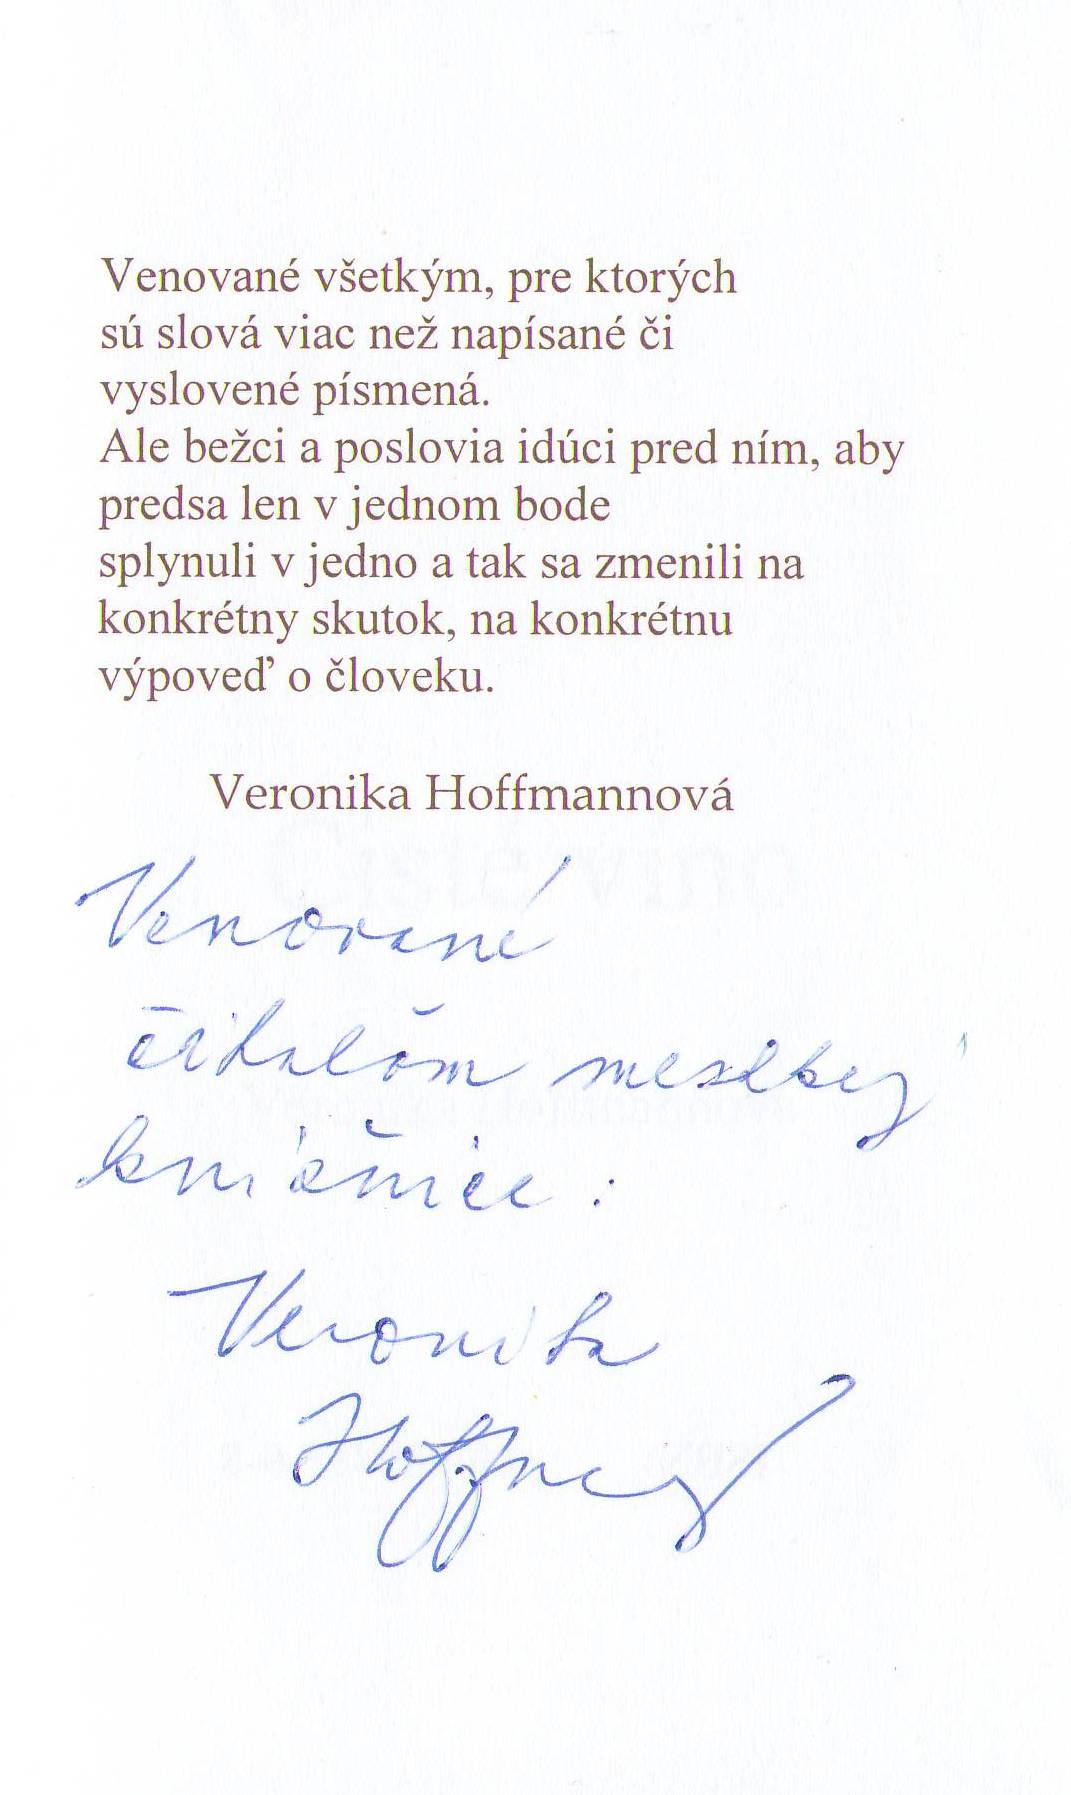 Venované všetkým, pre ktorých
sú slová viac než napísané či
vyslovené písmená.
Ale bežci a poslovia idúci pred ním, aby
predsa len v jednom bode
splynuli v jedno a tak sa zmenili na
konkrétny skutok, na konkrétnu
výpoveď o človeku.
Veronika Hoffmannová
Venované
čitateľom mestskej
knižnice:
Veronika